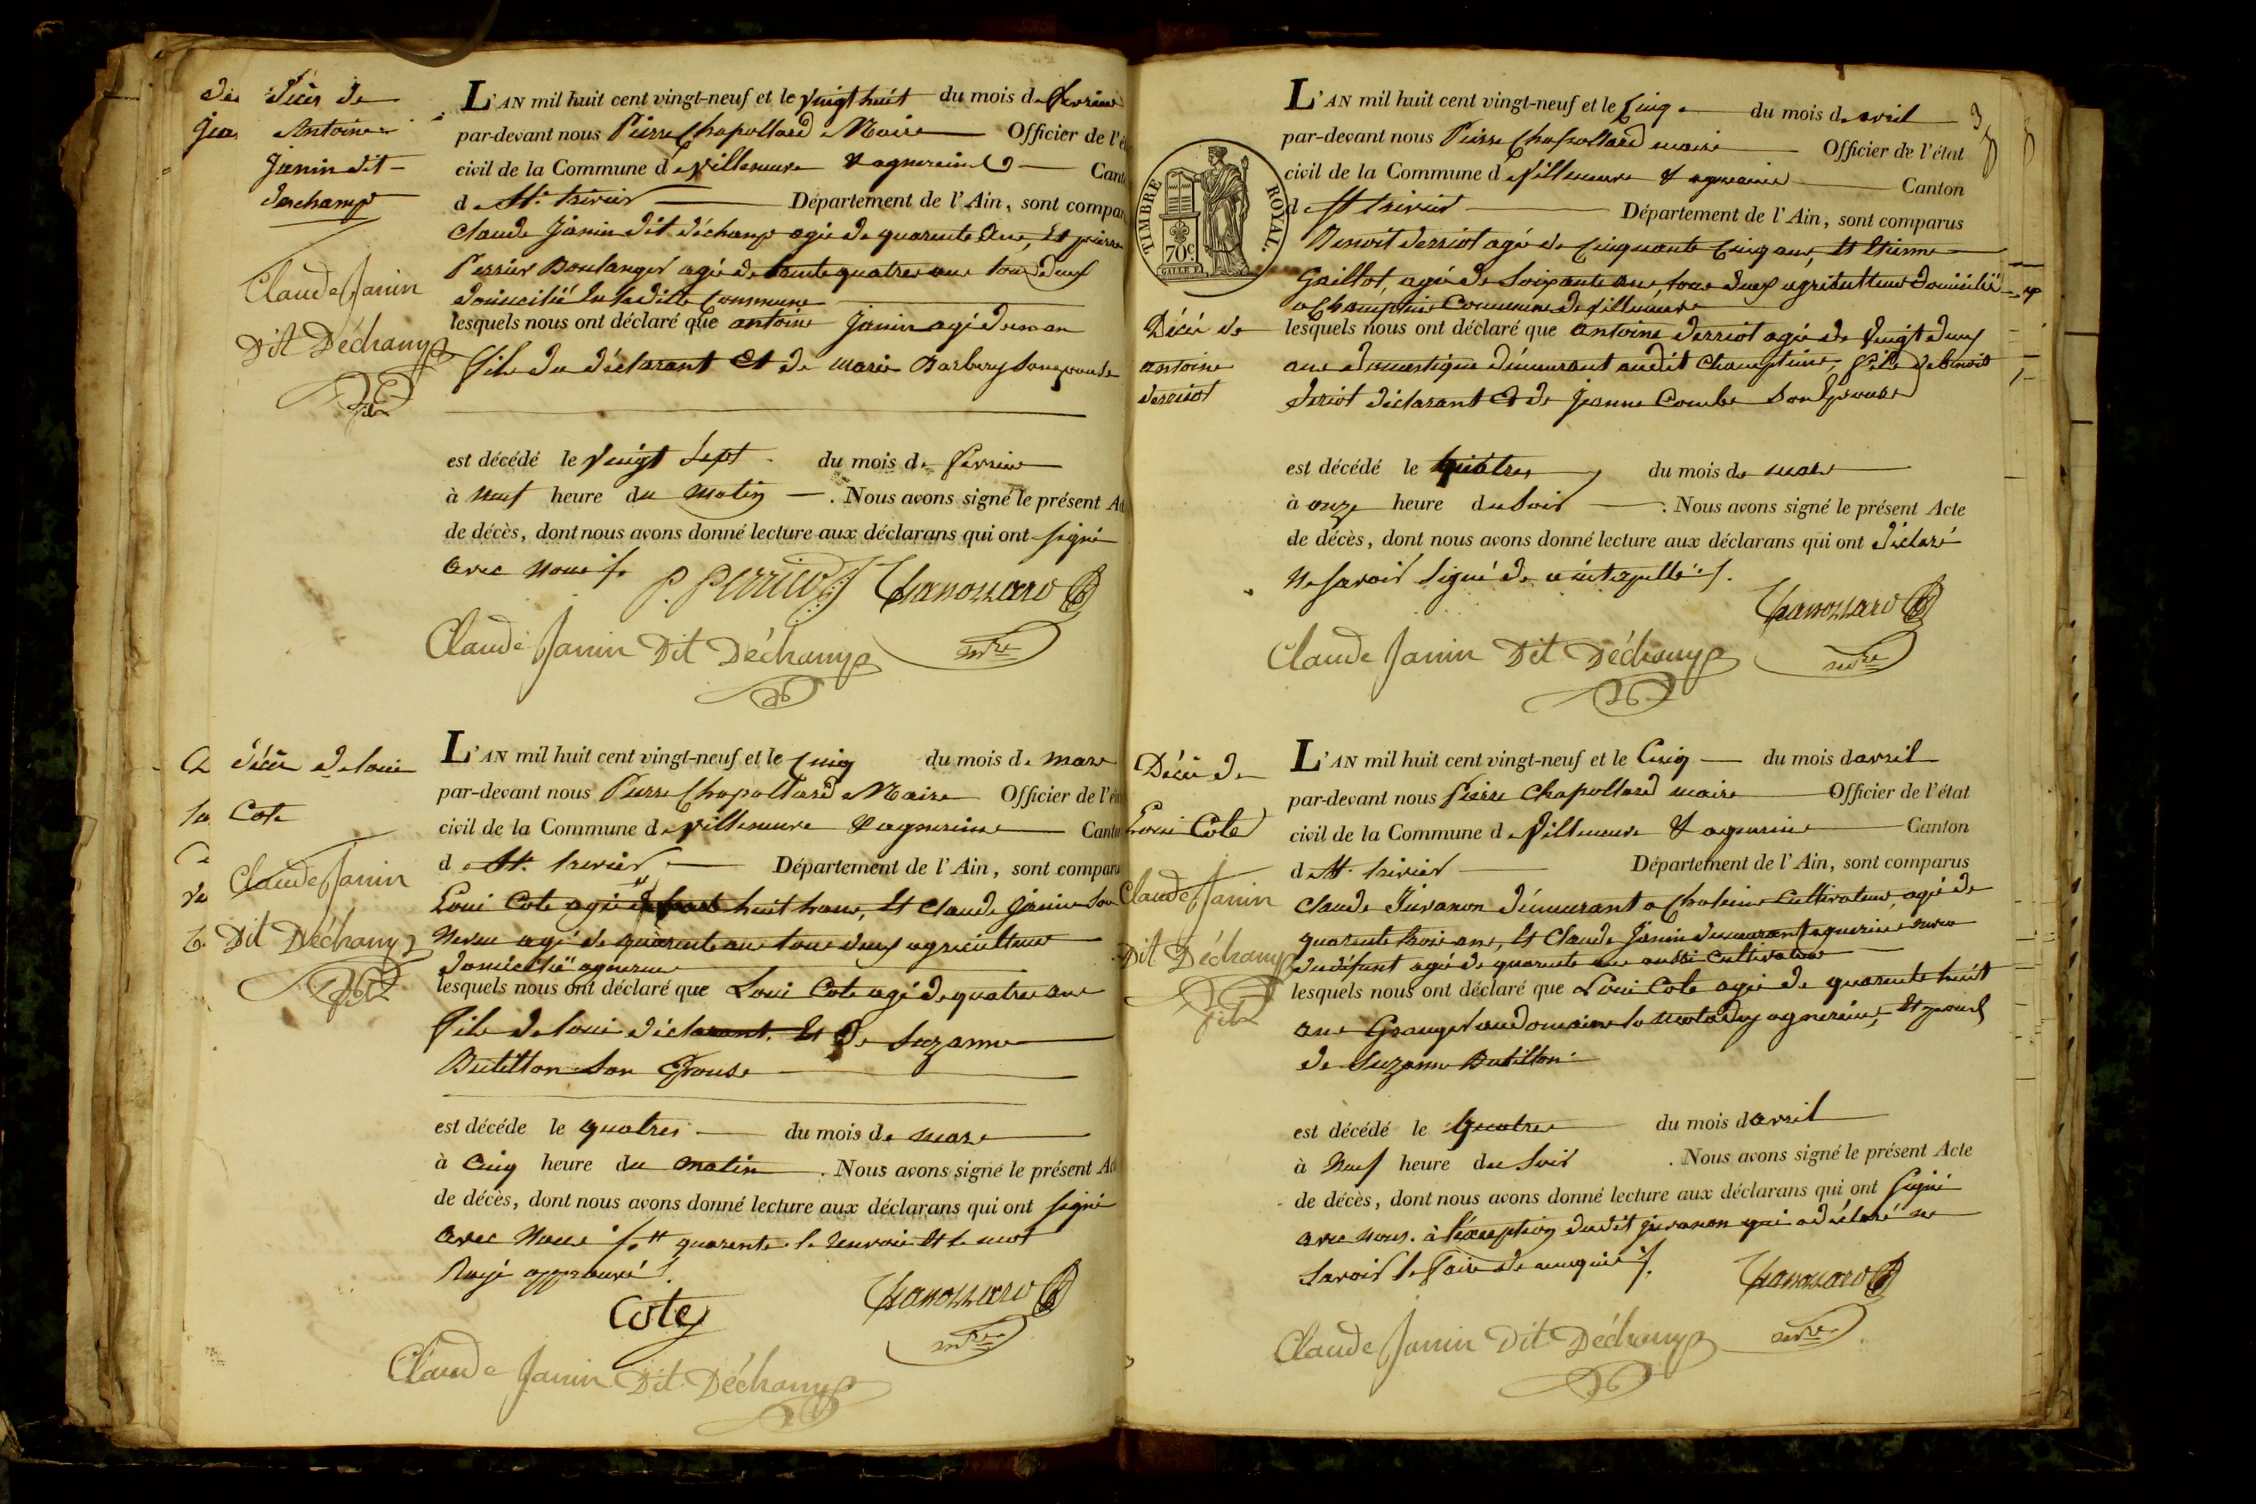 décès de
Antoine
Janin dit
deschamp
Claude Janin
Dit Déchamp
L'AN mil huit cent vingt-neuf et le vingt huit du mois de fevrier
par-devant nous Pierre Chapollard Maire Officier de l'é
civil de la Commune de Villeneuve & agnereins Cant
de St. trivier Département de l'Ain, sont compar
Claude Janin dit déchamp agé de quarente ans, Et pierre
Perrier Boulanger agé de trente quatres ans tous deux
domicilié en ladite Commune
lesquels nous ont déclaré que antoine Janin agé d'un an
fils du déclarant Et de marie Barbery son epouse
est décédé le vingt Sept du mois de fevrier
à neuf heure du matin . Nous avons signé le présent Ac
de décès, dont nous avons donné lecture aux déclarans qui ont signé
avec nous
Claude Janin Dit Déchamp
décès de loui
Cote
Claude Janin
Dit Déchamp
L'AN mil huit cent vingt-neuf et le Cinq du mois de mars
par-devant nous Pierre Chapollard Maire Officier de l'ét
civil de la Commune de Villeneuve & agnereins Canto
de St. trivier Département de l'Ain, sont comparu
Loui Cote agé huit hans, Et Claude Janin Son
Neveu agé de quarente ans tous deux agriculteur
domicilié agnereins
lesquels nous ont déclaré que Loui Cote agé de quatres ans
fils de loui déclarant Et de Suzanne
Butillon Son Epouse
est décéde le quatres du mois de mars
à Cinq heure du matin . Nous avons signé le présent Ac
de décès, dont nous avons donné lecture aux déclarans qui ont signé
avec Nous quarente le renvoie Et le mot
Rayé approuvé
Cote
Claude Janin Dit Déchamp
TIMBRE ROYAL.
70c.
L'AN mil huit cent vingt-neuf et le Cinq du mois d avril
par-devant nous Pierre Chapollard maire Officier de l'état
civil de la Commune de Villeneuve & agnereins Canton
de St trivier Département de l'Ain, sont comparus
Benoit derriot agé de Cinquante Cinq ans, Et Etienne
Gaillot, agé de Soixante ans tous deux agriculteur domicilié
a Chaneins Commune de Villeneuve
Décé de
antoine
derriot
lesquels nous ont déclaré que antoine derriot agé de vingt deux
ans domestique démeurant audit, fils de benoit
deriot déclarant Et de Jeanne Combe Son Epouse
est décédé le quatres du mois de mars
à onze heure du Soir . Nous avons signé le présent Acte
de décès, dont nous avons donné lecture aux déclarans qui ont déclaré
Ne Savoir Signé de ce interpellé
Claude Janin Dit Déchamp
Décé de
Loui Cote
Claude Janin
Dit Déchamp
L'AN mil huit cent vingt-neuf et le Cinq du mois d avril
par-devant nous Pierre Chapollard maire Officier de l'état
civil de la Commune de Villeneuve & agnereins Canton
de St. trivier Département de l'Ain, sont comparus
Claude Juvanon démeurant a Chaleins Cultivateur, agé de
quarente trois ans, Et Claude Janin demeurant agnereins neveu
du défunt agé de quarente ans aussi Cultivateur
lesquels nous ont déclaré que Loui Cote agé de quarente huit
ans Granger au domaine agnereins, Et epoux
de Suzanne Butillon
est décédé le quatres du mois d avril
à Neuf heure du Soir . Nous avons signé le présent Acte
de décès, dont nous avons donné lecture aux déclarans qui ont signé
avec nous. à l'exception dudit juvanon qui a déclaré ne
Savoir le faire de ce enquis
Claude Janin Dit Déchamp